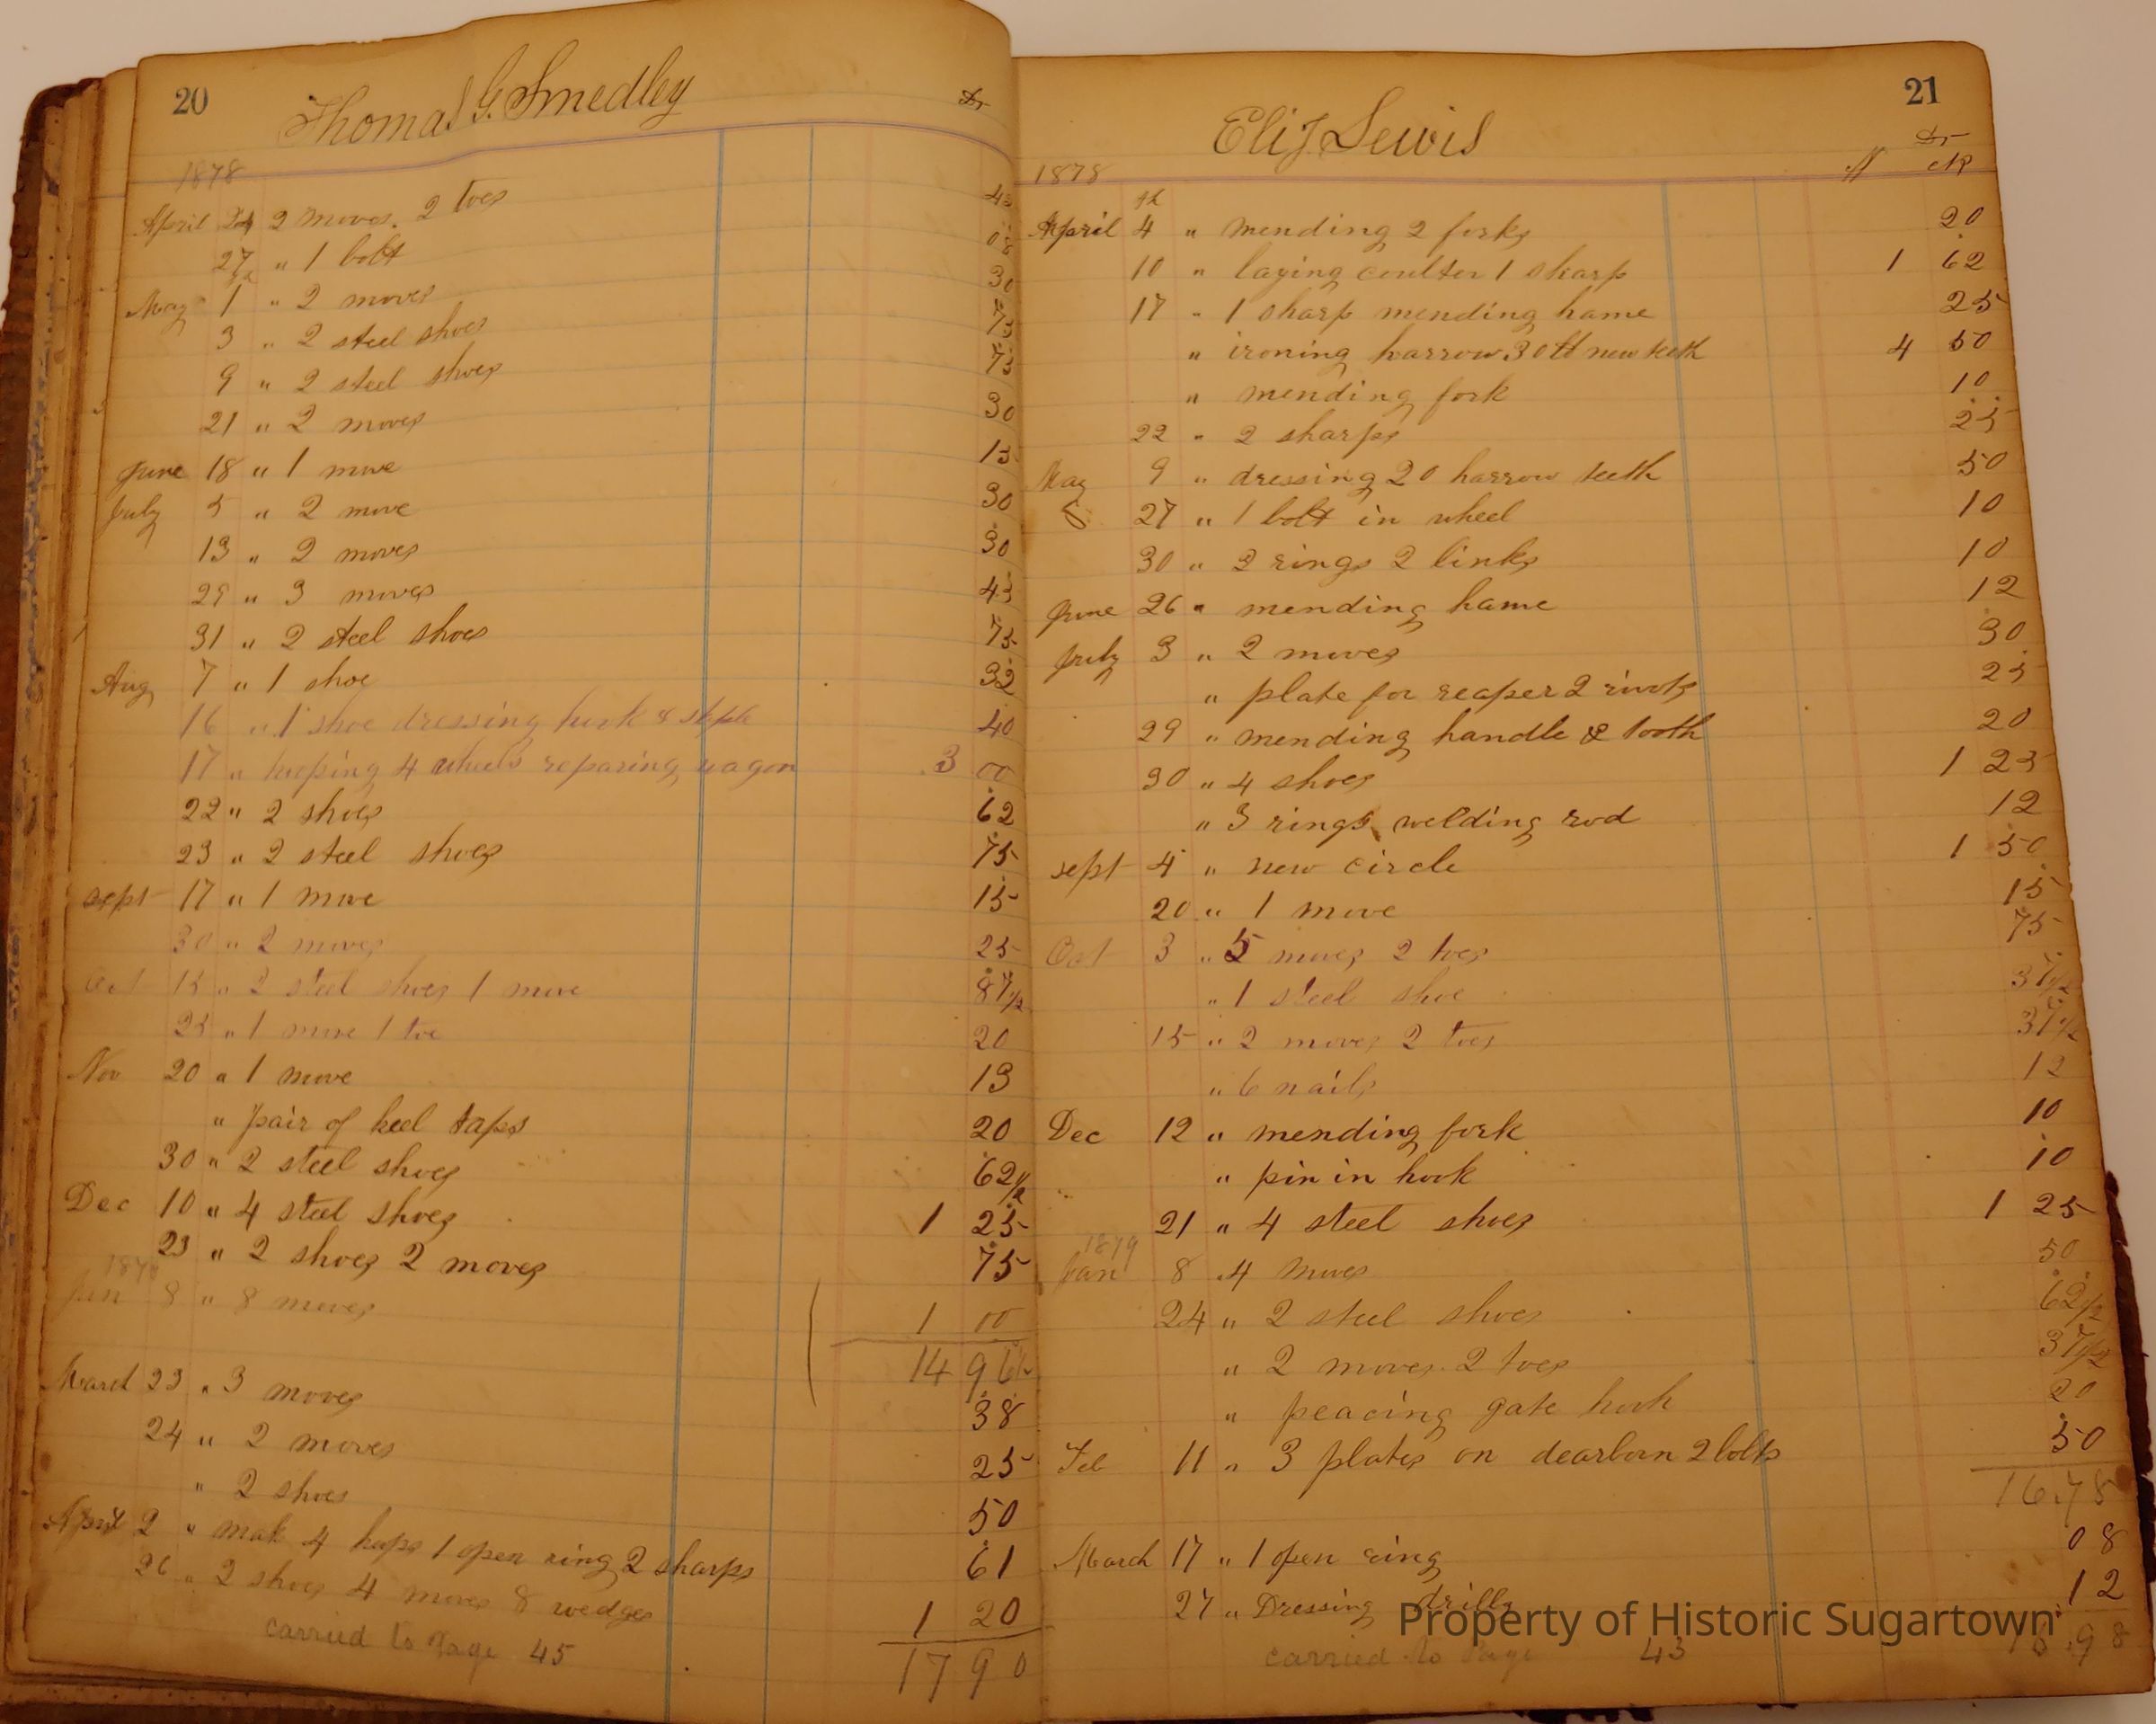 20
Thomas G. Smedley
Dr
1878
April 24 2 moves. 2 toes 45
27 " 1 bolt 08
May 1 " 2 moves 30
3 " 2 steel shoes 75
9 " 2 steel shoes 75
21 " 2 moves 30
June 18 " 1 move 15
July 5 " 2 move 30
13 " 2 moves 30
29 " 3 moves 45
31 " 2 steel shoes 75
Aug 7 " 1 shoe 32
16 " 1 shoe dressing fork & staple 40
17 " hooping 4 wheels reparing wagon 3 00
22 " 2 shoes 62
23 " 2 steel shoes 75
sept 17 " 1 move 15
30 " 2 moves 25
Oct 15 " 2 steel shoes 1 move 87 1/2
25 " 1 move 1 toe 20
Nov 20 " 1 move 13
" pair of heel taps 20
30 " 2 steel shoes 62 1/2
Dec 10 " 4 steel shoes 1 25
23 " 2 shoes 2 moves 75
1879
Jan 8 " 8 moves 1 00
14 96 1/2
March 23 " 3 moves 38
24 " 2 moves 25
" 2 shoes 50
April 2 " mak 4 hops 1 open ring 2 sharps 61
26 " 2 shoes 4 moves 8 wedges 1 20
carried to Page 45
17 90
21
Eli J Lewis
Dr
1878
April 4 " mending 2 forks 20
10 " laying coulter 1 sharp 1 62
17 " 1 sharp mending hame 25
" ironing harrow 30 lb new teeth 4 50
" mending fork 10
22 " 2 sharps 25
May 9 " dressing 20 harrow teeth 50
27 " 1 bolt in wheel 10
30 " 2 rings 2 links 10
June 26 " mending hame 12
July 3 " 2 moves 30
" plate for reaper 2 rivots 25
29 " mending handle & tooth 20
30 " 4 shoes 1 25
" 3 rings welding rod 12
sept 4 " new circle 1 50
20 " 1 move 15
Oct 3 " 5 moves 2 toes 75
" 1 steel shoe 37 1/2
15 " 2 moves 2 toes 37 1/2
" 6 nails 12
Dec 12 " mending fork 10
" pin in hook 10
21 " 4 steel shoes 1 25
1879
Jan 8 " 4 moves 50
24 " 2 steel shoes 62 1/2
" 2 moves. 2 toes 37 1/2
" peacing gate hook 20
Feb 11 " 3 plates on dearborn 2 bolts 50
16.78
March 17 " 1 open ring 08
27 " Dressing drills 12
carried to Page 43
16.98
Property of Historic Sugartown